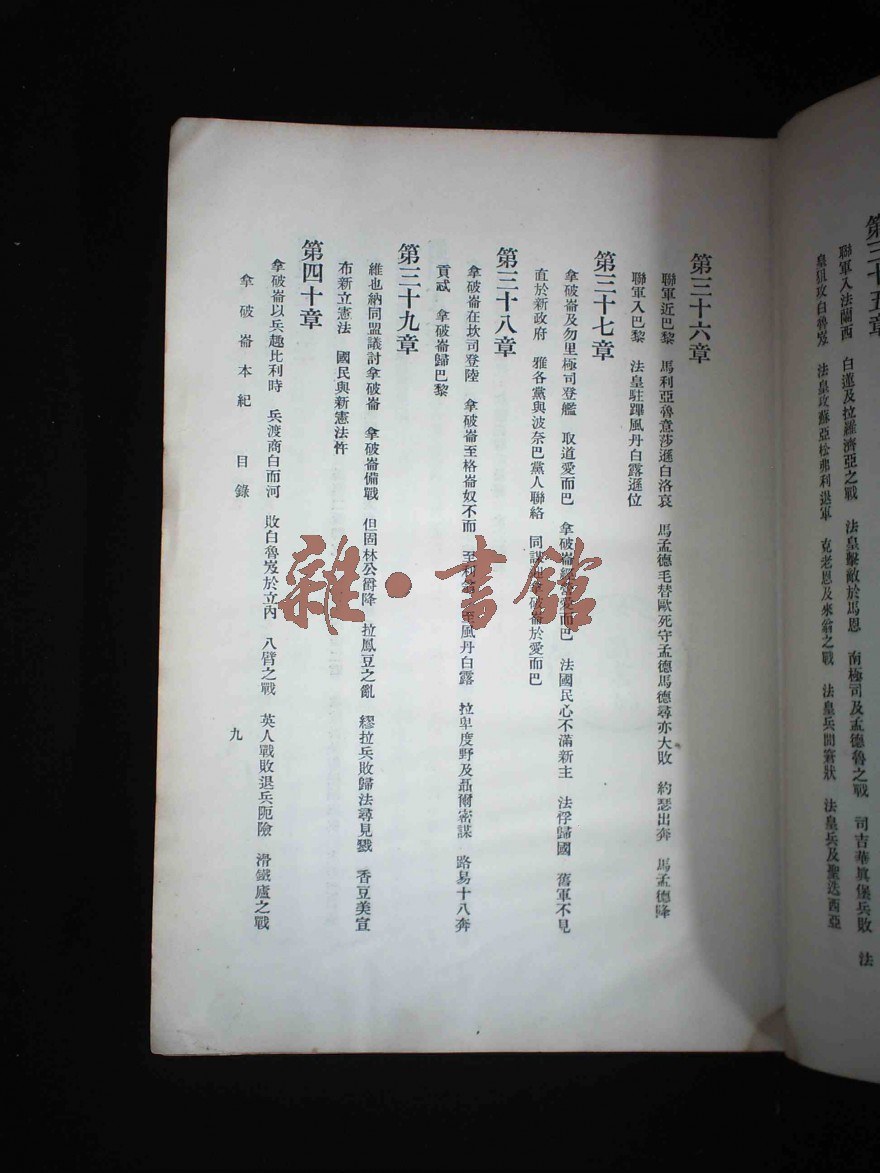 第三十五章
聯軍入法蘭西 白蓮及拉羅濟亞之戰 法皇擊敵於馬恩 南極司及孟德魯之戰 司吉華眞堡兵敗 法
皇狙攻白魯岌 法皇攻蘇亞松弗利退軍 克老恩及來翁之戰 法皇兵間窘狀 法皇兵及聖迭西亞
第三十六章
聯軍近巴黎 馬利亞魯意莎遜白洛哀 馬孟德毛替歐死守孟德馬德尋亦大敗 約瑟出奔 馬孟德降
聯軍入巴黎 法皇駐蹕風丹白露遜位
第三十七章
拿破崙及勿里極司登艦 取道愛而巴 拿破崙經營愛而巴 法國民心不滿新主 法俘歸國 舊軍不見
直於新政府 雅各黨與波奈巴黨人聯絡 同謀 拿破崙於愛而巴
第三十八章
拿破崙在坎司登陸 拿破崙至格崙奴不而 至利翁 至風丹白露 拉卑度野及聶爾密謀 路易十八奔
貢忒 拿破崙歸巴黎
第三十九章
維也納同盟議討拿破崙 拿破崙備戰 但固林公爵降 拉鳳豆之亂 繆拉兵敗歸法尋見戮 香豆美宣
布新立憲法 國民與新憲法忤
第四十章
拿破崙以兵趣比利時 兵渡商白而河 敗白魯岌於立內 八臂之戰 英人戰敗退兵阨險 滑鐵廬之戰
拿破崙本紀 目錄
九
雜·書館